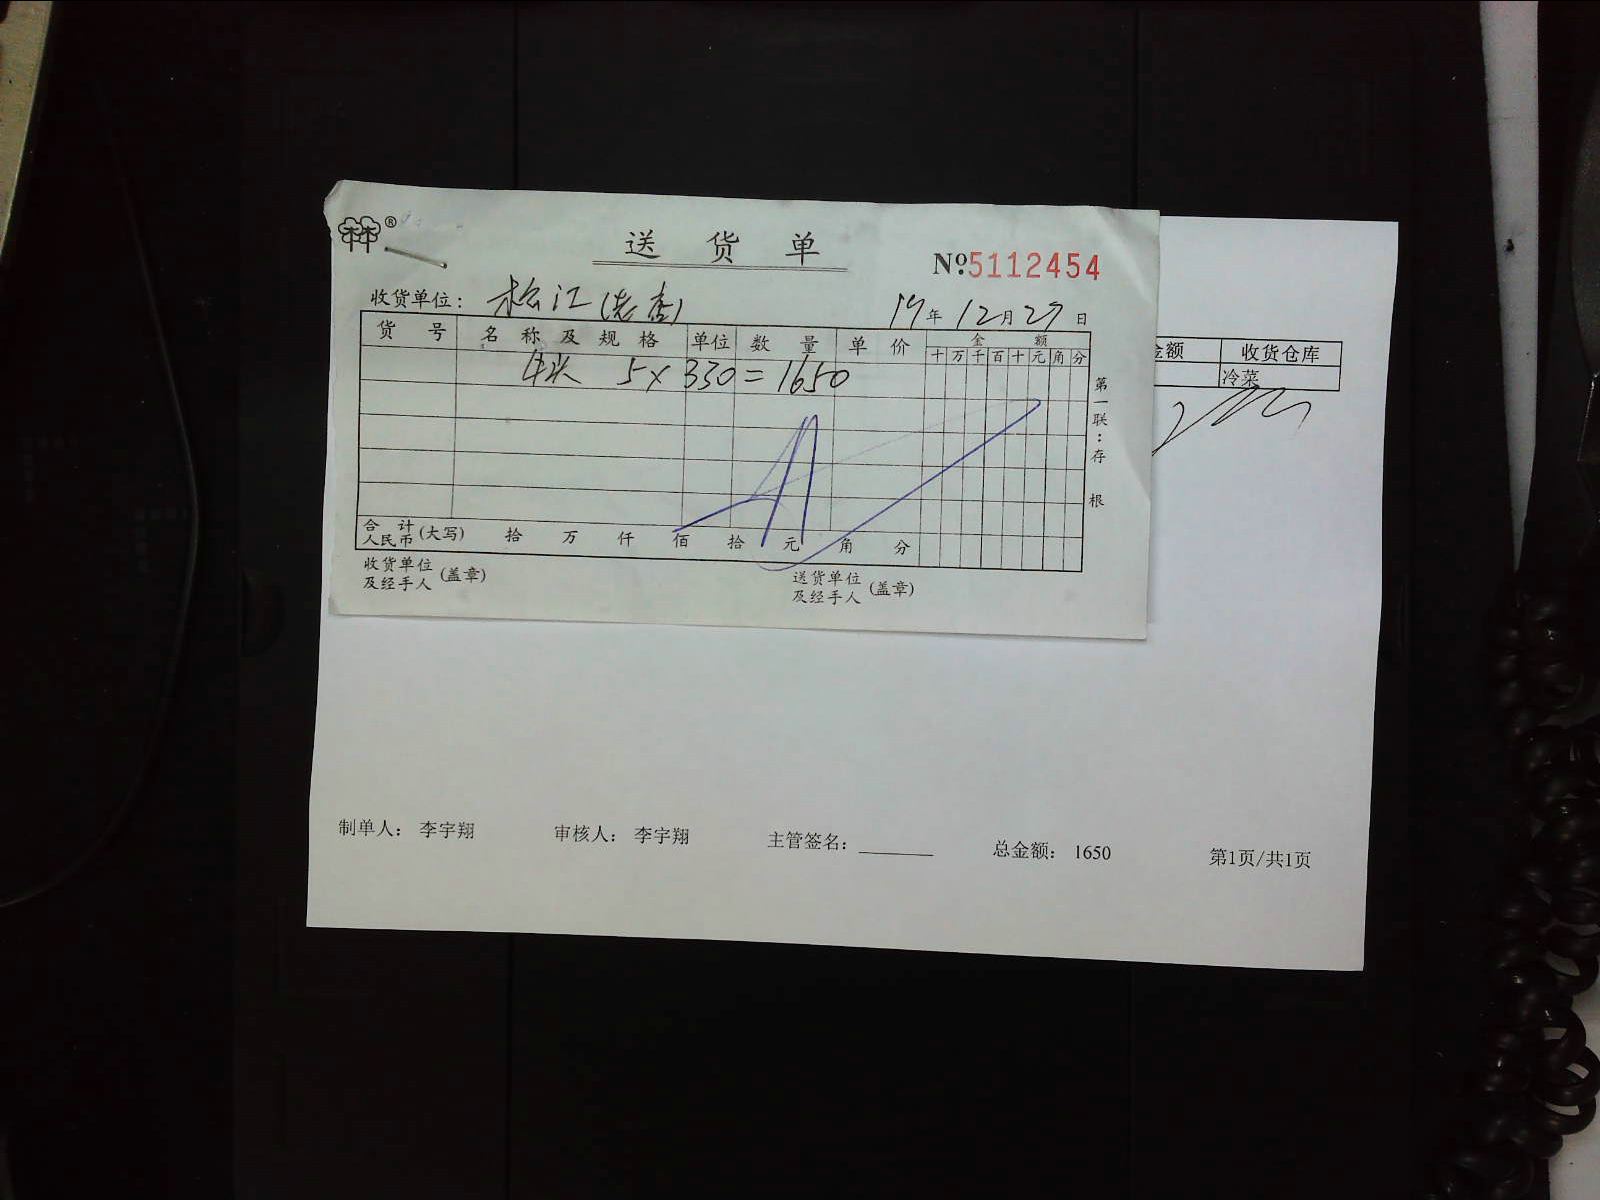 林®
送货单
№5112454
收货单位：松江(老查)
19年12月27日
货号 名称及规格 单位 数量 单价 金额
十万千百十元角分
5×330=1650
第一联：存根
合计人民币(大写) 拾 万 仟 佰 拾 元 角 分
收货单位及经手人(盖章)
送货单位及经手人(盖章)
金额 收货仓库
冷菜
制单人： 李宇翔 审核人： 李宇翔 主管签名： 总金额： 1650 第1页/共1页